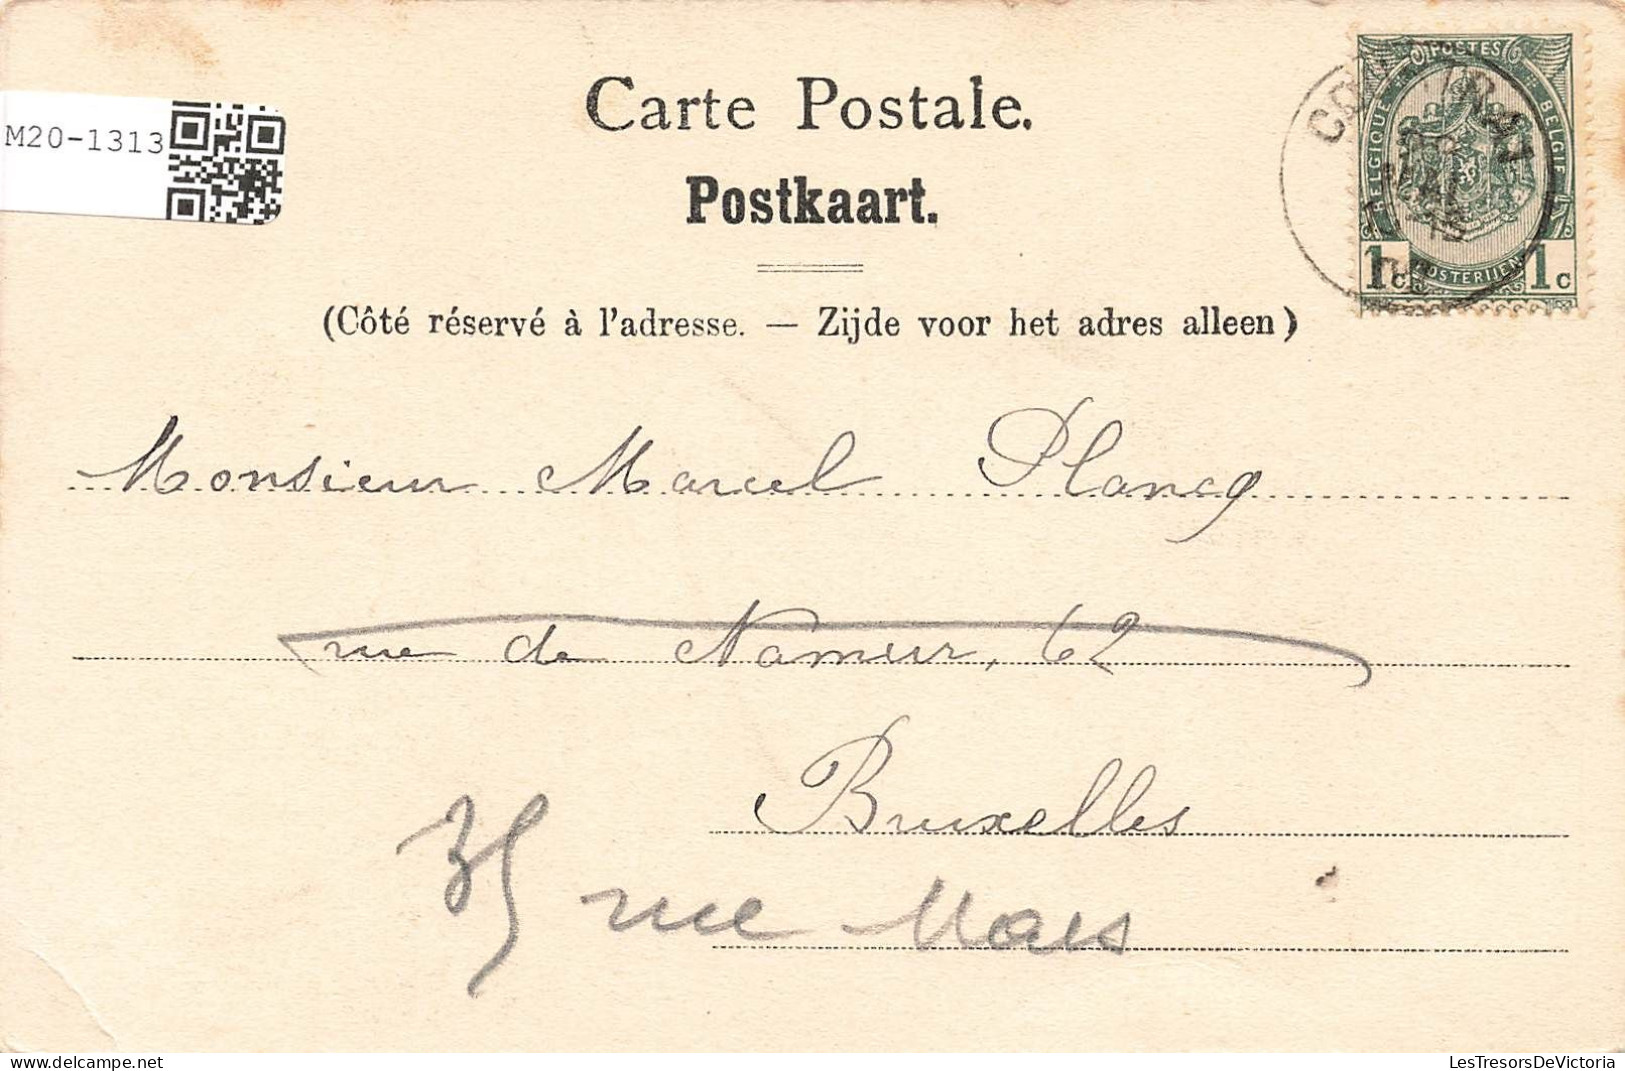 M20-1313
Carte Postale.
Postkaart.
(Côté réservé à l'adresse. — Zijde voor het adres alleen)
POSTES
BELGIQUE
BELGIE
POSTERIJEN
1c 1c
Monsieur Marcel Plancq
rue de Namur, 62
Bruxelles
35 rue Maes
Delcampe.net
LesTresorsDeVictoria